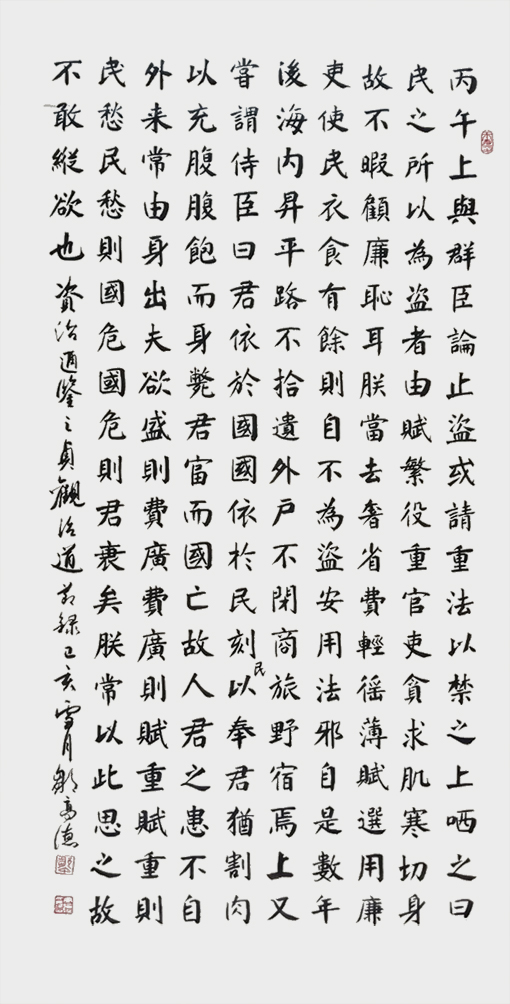 丙午上與群臣論止盜或請重法以禁之上哂之曰
民之所以為盜者由賦繁役重官吏貪求肌寒切身
故不暇顧廉恥耳朕當去奢省費輕徭薄賦選用廉
吏使民衣食有餘則自不為盜安用法邪自是數年
後海內昇平路不拾遺外戶不閉商旅野宿焉上又
嘗謂侍臣曰君依於國國依於民刻民以奉君猶割肉
以充腹腹飽而身斃君富而國亡故人君之患不自
外来常由身出夫欲盛則費廣費廣則賦重賦重則
民愁民愁則國危國危則君衰矣朕常以此思之故
不敢縱欲也 資治通鑒之貞觀治道 節錄 己亥雪月 高德